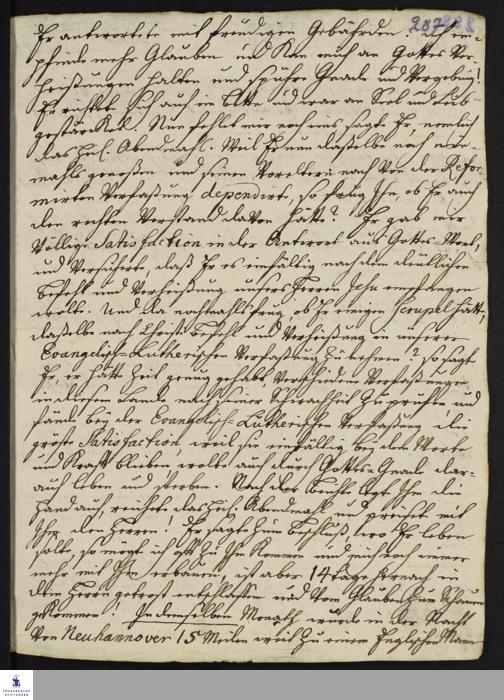 287
Er antwortete mit freudigen Gebährden: Ich em-
pfinde mehr Glauben und kan mich an Gottes Ver-
heißungen halten und spühre Gnade und Vergebung!
Er richtete sich auch im Bette und war an Seel und Leib
gestärcket. Nun fehlt mir noch eins sagte Er, nemlich
das Heil. Abendmahl. Weil Er nun dasselbe noch nie-
mahls genoßen und seinen Voreltern nach von der Refor-
mirten Verfaßung dependirt, so frug Ihn, ob Er auch
den rechten Verstand davon hätte? Er gab mir
völlige Satisfaction in der Antwort aus Gottes-Wort,
und versicherte, daß Er es einfältig nach dem deutlichen
Befehl und Verheißung unsers Herren Jesu empfangen
wolte. Und da nochmahls frug, ob Er einigen Scrupel hätte,
dasselbe nach Christi Befehl und Verheißung in unserer
Evangelisch-Lutherischen Verfaßung zu nehmen? so sagt
Er, er hätte Zeit genug gehabt verschiedene Verfaßungen
in diesem Lande nach seiner Schwachheit zu prüfen und
fände bey der Evangelisch-Lutherischen Verfaßung die
gröste Satisfaction, weil sie einfältig bey dem Worte
und Krafft blieben, wolte auch durch Gottes-Gnade dar-
auf leben und sterben. Nach der Beichte legt Ihm die
Hand auf, reichte das Heil. Abendmahl und preiset mit
Ihm den Herren! Er sagte zum Beschluß, wo Er leben
solte, so mögt ich oft zu Ihm kommen und mich noch immer
mehr mit Ihm erbauen, ist aber 14 tage hernach in
dem Herrn getrost entschlaffen und vom Glauben zum Schauen
gekommen! In demselben Monath wurde in der Nacht
von Neuhannover 15 Meilen weit zu einem Englischen Mann
FRANCKESCHE
STIFTUNGEN